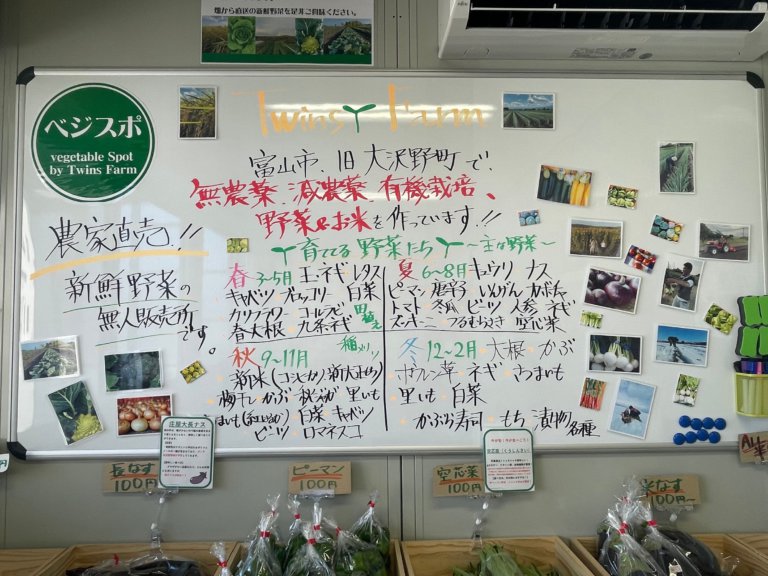 畑から直送の新鮮野菜を是非ご賞味ください。
ベジスポ
vegetable Spot
by Twins Farm
Twins Farm
富山市 旧大沢野町で、
無農薬、減農薬、有機栽培、
野菜&お米を作っています!!
農家直売!!
新鮮野菜の
無人販売所です。
育てる野菜たち ～主な野菜～
春 3~5月 玉ネギ レタス
キャベツ ブロッコリー 白菜
カリフラワー コールラビ 田植え
春大根 九条ネギ
夏 6~8月 キュウリ ナス
ピーマン いんげん かぼちゃ
トマト 冬瓜 ビーツ 人参 ネギ
ズッキーニ つるむらさき 空芯菜
秋 9~11月 稲刈り
新米(コシヒカリ)
梅干し かぶ 秋じゃが 里いも
白菜 キャベツ
ビーツ ロマネスコ
冬 12~2月 大根 かぶ
ホウレン草 ネギ さつまいも
里いも 白菜
かぶら寿司 もち 漬物 各種
庄屋大長ナス
長なす
100円
ピーマン
100円
空芯菜
100円
米なす
100円~